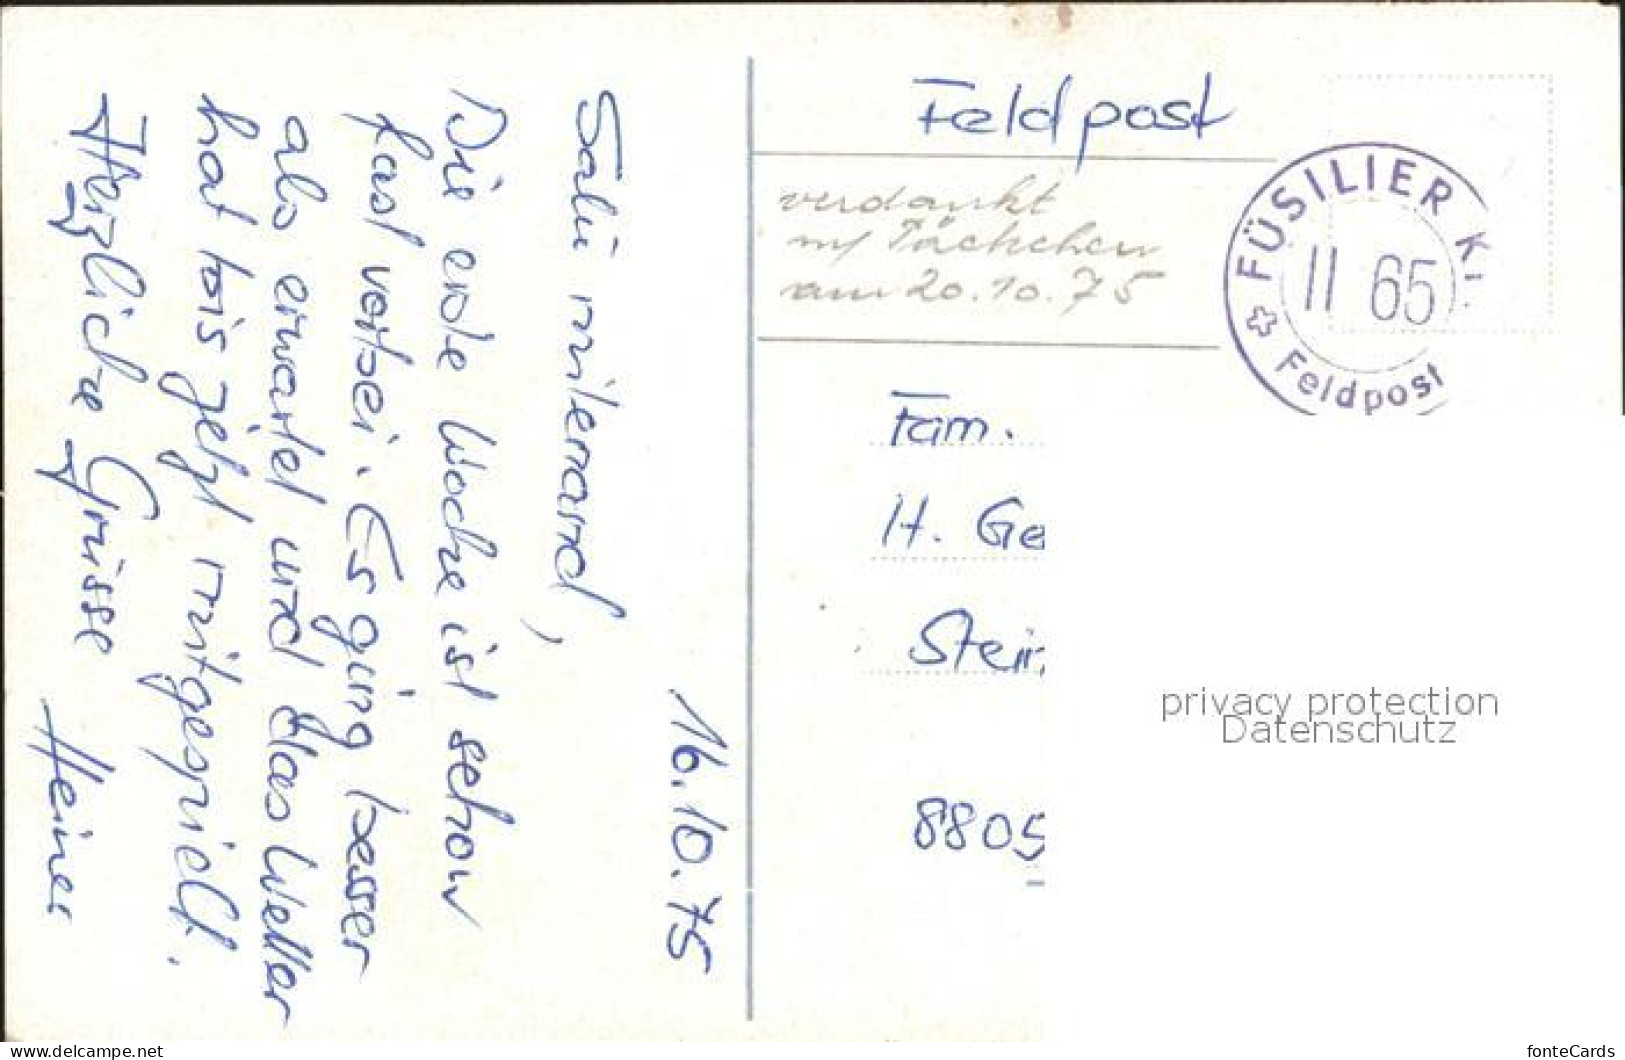 16.10.75
Salü mitenand,
Die erste Woche ist schon
fast vorbei. Es ging besser
als erwartet und das Wetter
hat bis jetzt mitgespielt.
Herzliche Grüsse Heiner
Feldpost
verdankt
m/ Päckchen
am 20.10.75
FÜSILIER K
II 65
Feldpost
Fam.
H. Ge
Stein
8805
privacy protection
Datenschutz
www.delcampe.net
fonteCards